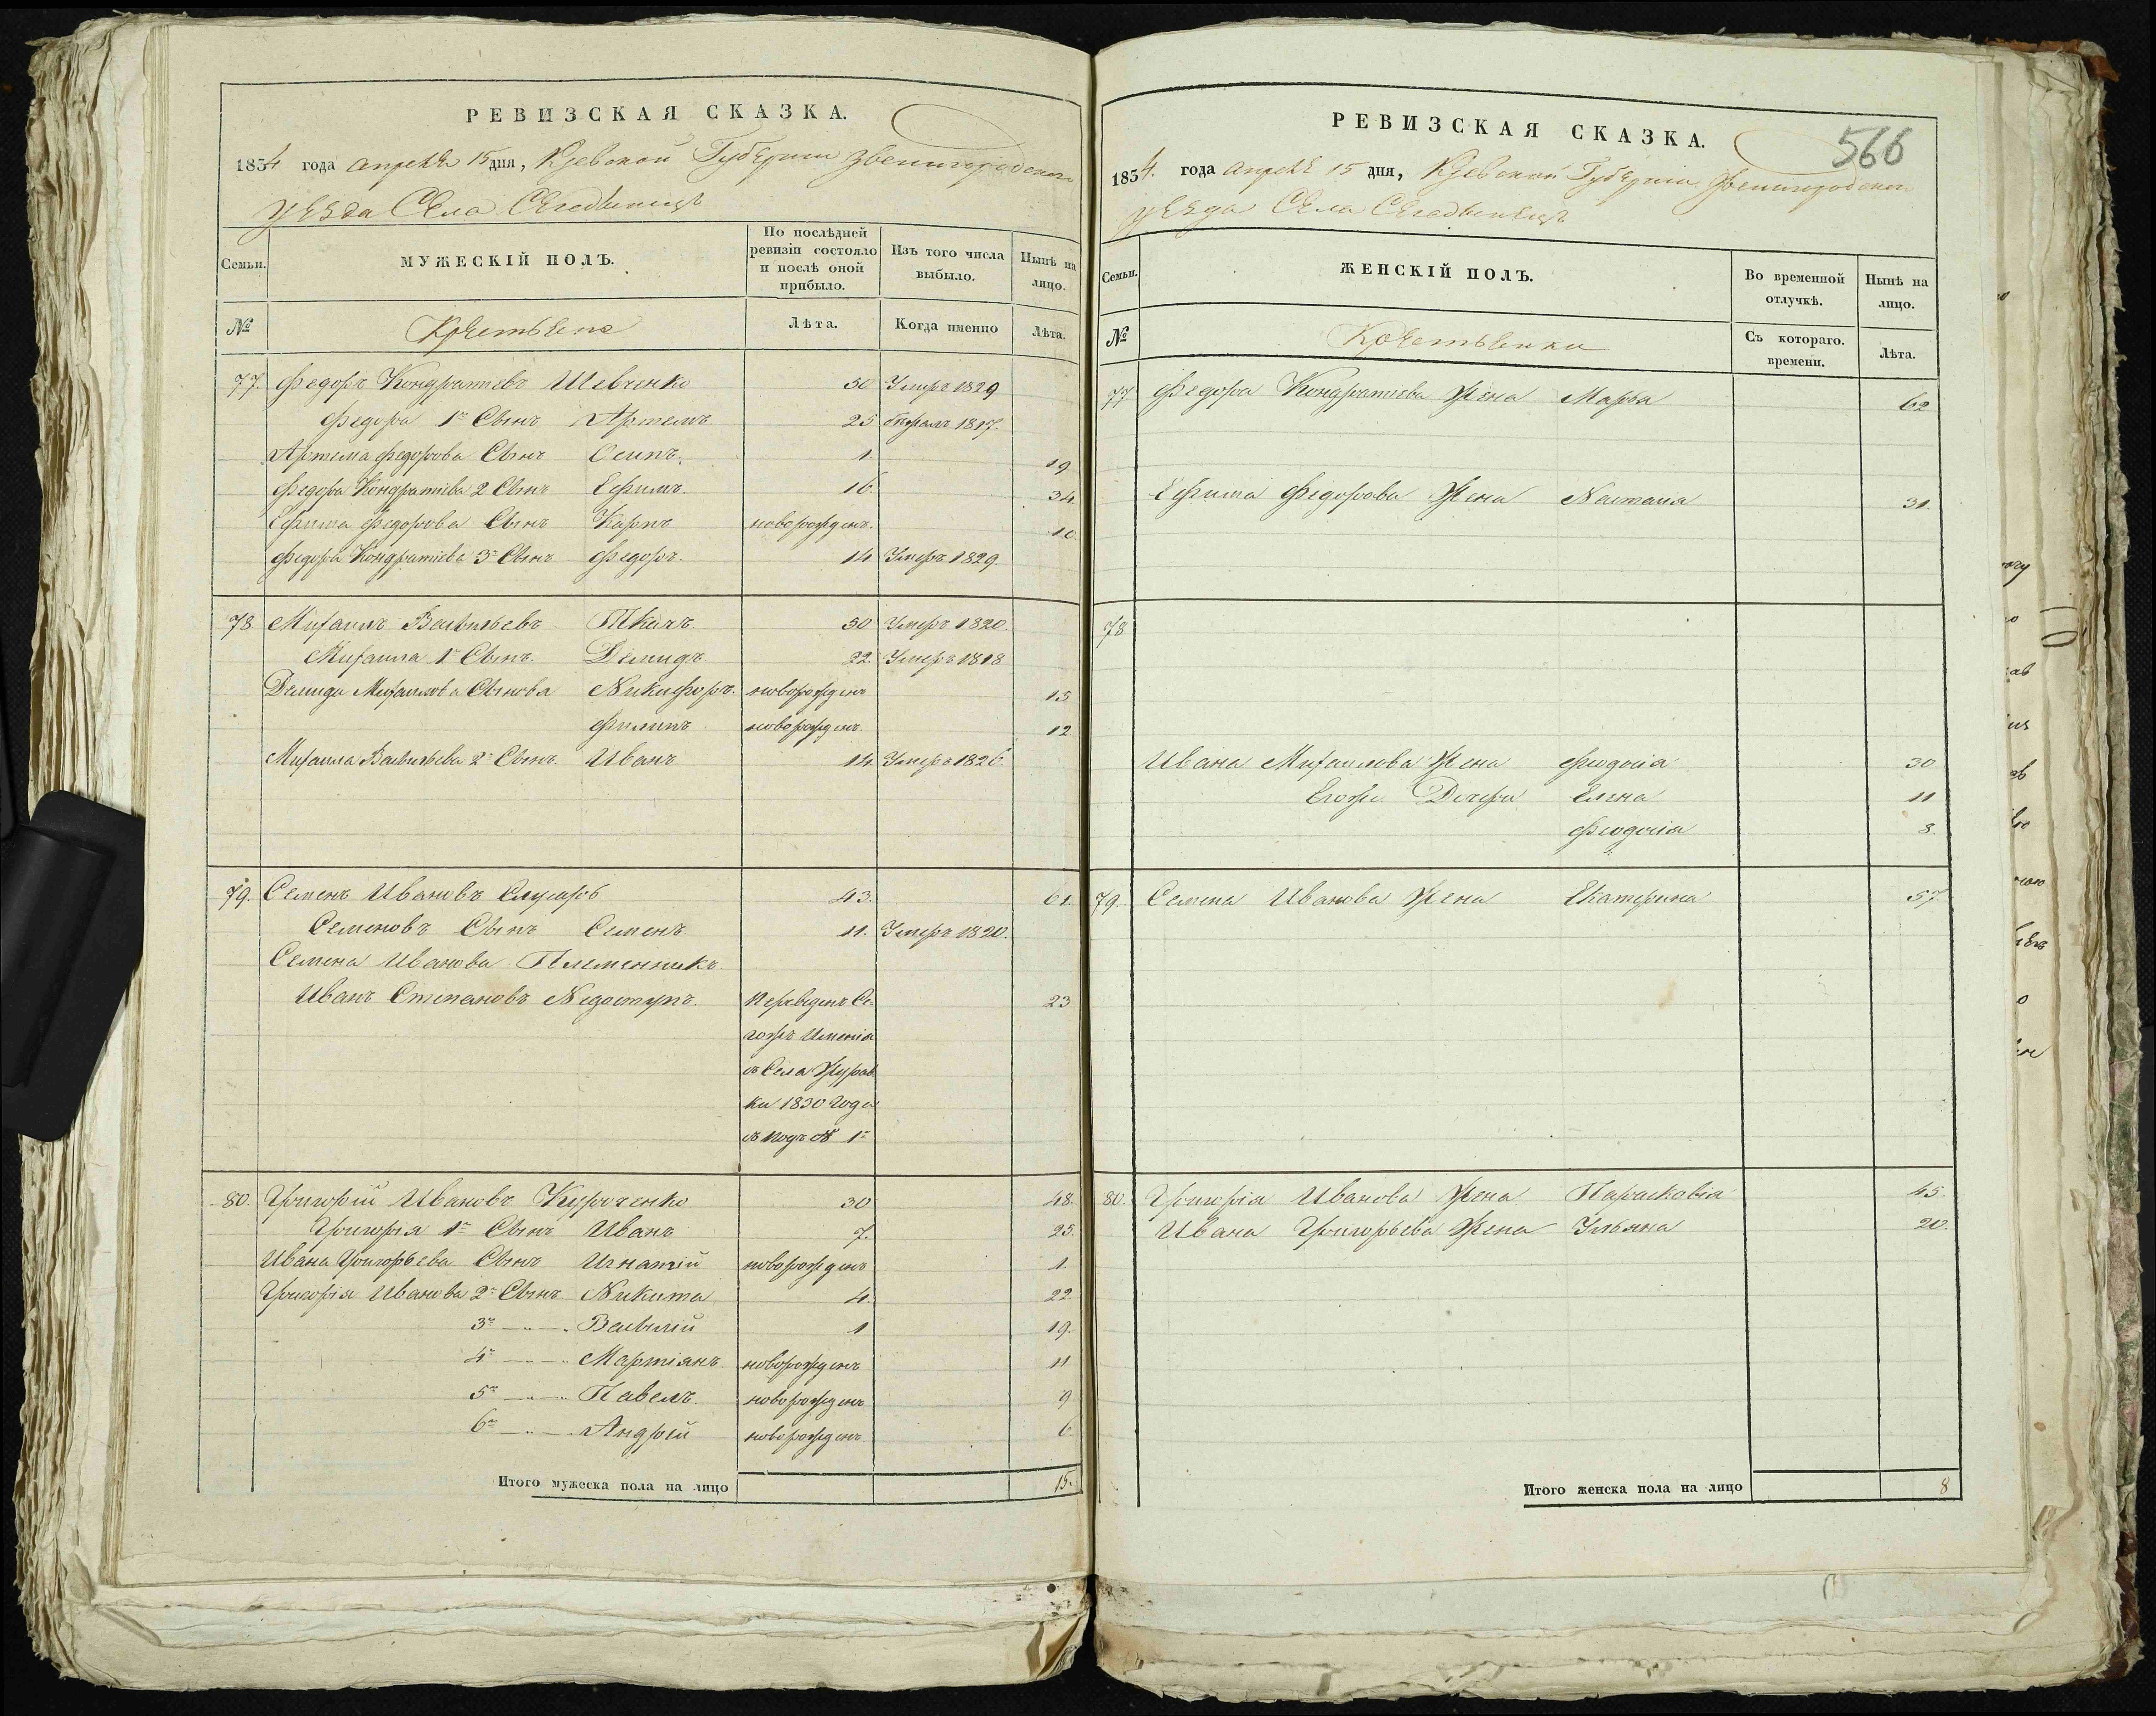 РЕВИЗСКАЯ СКАЗКА.
1834 года апреля 15 дня, Кіевской Губерніи Звенигородскаго
уезда Села
Семьи.
МУЖЕСКІЙ ПОЛЪ.
По послѣдней ревизіи состояло и послѣ оной прибыло.
Изъ того числа выбыло.
Нынѣ на лицо.
№
Крестьяне
Лѣта.
Когда именно
Лѣта.
77. Федоръ Кондратіевъ Шевченко 50 Умеръ 1829
Федора 1й Сынъ Артемъ 25 1817.
Артема Федорова Сынъ Осипъ. 1. 19
Федора Кондратіева 2 Сынъ Ефимъ. 16. 34.
Ефима Федорова Сынъ Карпъ новорожденъ. 10.
Федора Кондратіева 3й Сынъ Федоръ. 14 Умеръ 1829.
78 Михаилъ Васильевъ Ткачъ 50 Умеръ 1820.
Михаила 1й Сынъ. Демидъ 22. Умеръ 1818
Демида Михаилова Сынова Никифоръ. новорожденъ 15
Филипъ новорожденъ 12
Михаила Васильева 2й Сынъ. Иванъ 14. Умеръ 1826
79. Семенъ Ивановъ Слусарь 43. 61.
Семеновъ Сынъ Семенъ 11. Умеръ 1820.
Семена Иванова Племенникъ
Иванъ Степановъ Недоступъ. Переведенъ Се- 23
гожъ Именія
съ Села Журав
ки 1830 Года
съ подъ № 1й
80. Григорій Ивановъ Кириченко 30 48.
Григорія 1й Сынъ Иванъ 7. 25.
Ивана Григорьева Сынъ Игнатій новорожденъ 1.
Григорія Иванова 2й Сынъ Никита 4. 22.
3й — „ — Василій 1 19.
4й — „ — Мартіянъ новорожденъ 11
5й — „ — Павелъ. новорожденъ 9
6й — „ — Андрій новорожденъ 6
Итого мужеска пола на лицо 15.
РЕВИЗСКАЯ СКАЗКА.
566
1834. года апреля 15 дня, Кіевской Губерніи Звенигородскаго
уезда Села
Семьи.
ЖЕНСКІЙ ПОЛЪ.
Во временной отлучкѣ.
Нынѣ на лицо.
№
Крестьянки
Съ котораго. времени.
Лѣта.
77 Федора Кондратіева Жена Марва 62
Ефима Федорова Жена Насталія 31.
78.
Ивана Михаилова Жена Феодосія 30
Егоже Дочери Елена 11
Феодосія 8.
79. Семена Иванова Жена Екатерина 57
80. Григорія Иванова Жена Парасковія 45.
Ивана Григорьева Жена Ульяна 20.
Итого женска пола на лицо 8